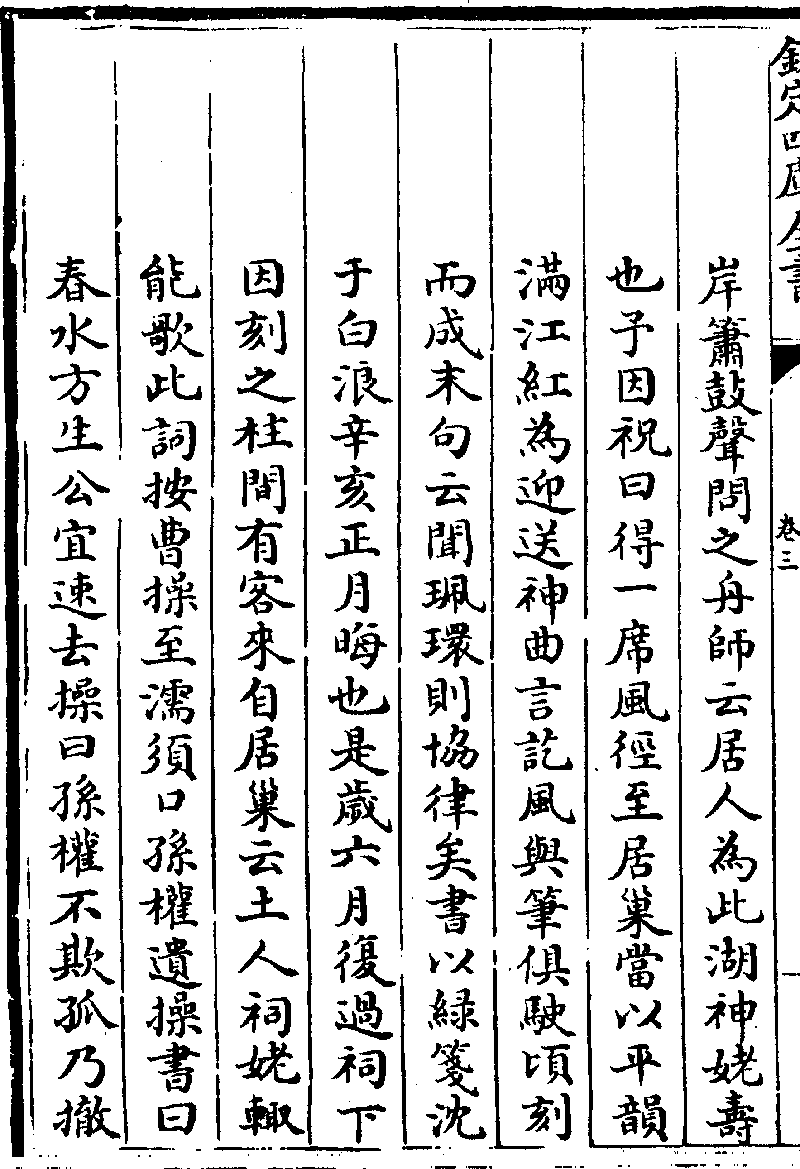 欽定四庫全書
卷三
岸簫鼓聲問之舟師云居人為此湖神姥壽
也予因祝曰得一席風徑至居巢當以平韻
滿江紅為迎送神曲言訖風與筆俱駛頃刻
而成末句云聞珮環則協律矣書以緑箋沈
于白浪辛亥正月晦也是歲六月復過祠下
因刻之柱間有客來自居巢云土人祠姥輙
能歌此詞按曹操至濡須口孫權遺操書曰
春水方生公宜速去操曰孫權不欺孤乃撤